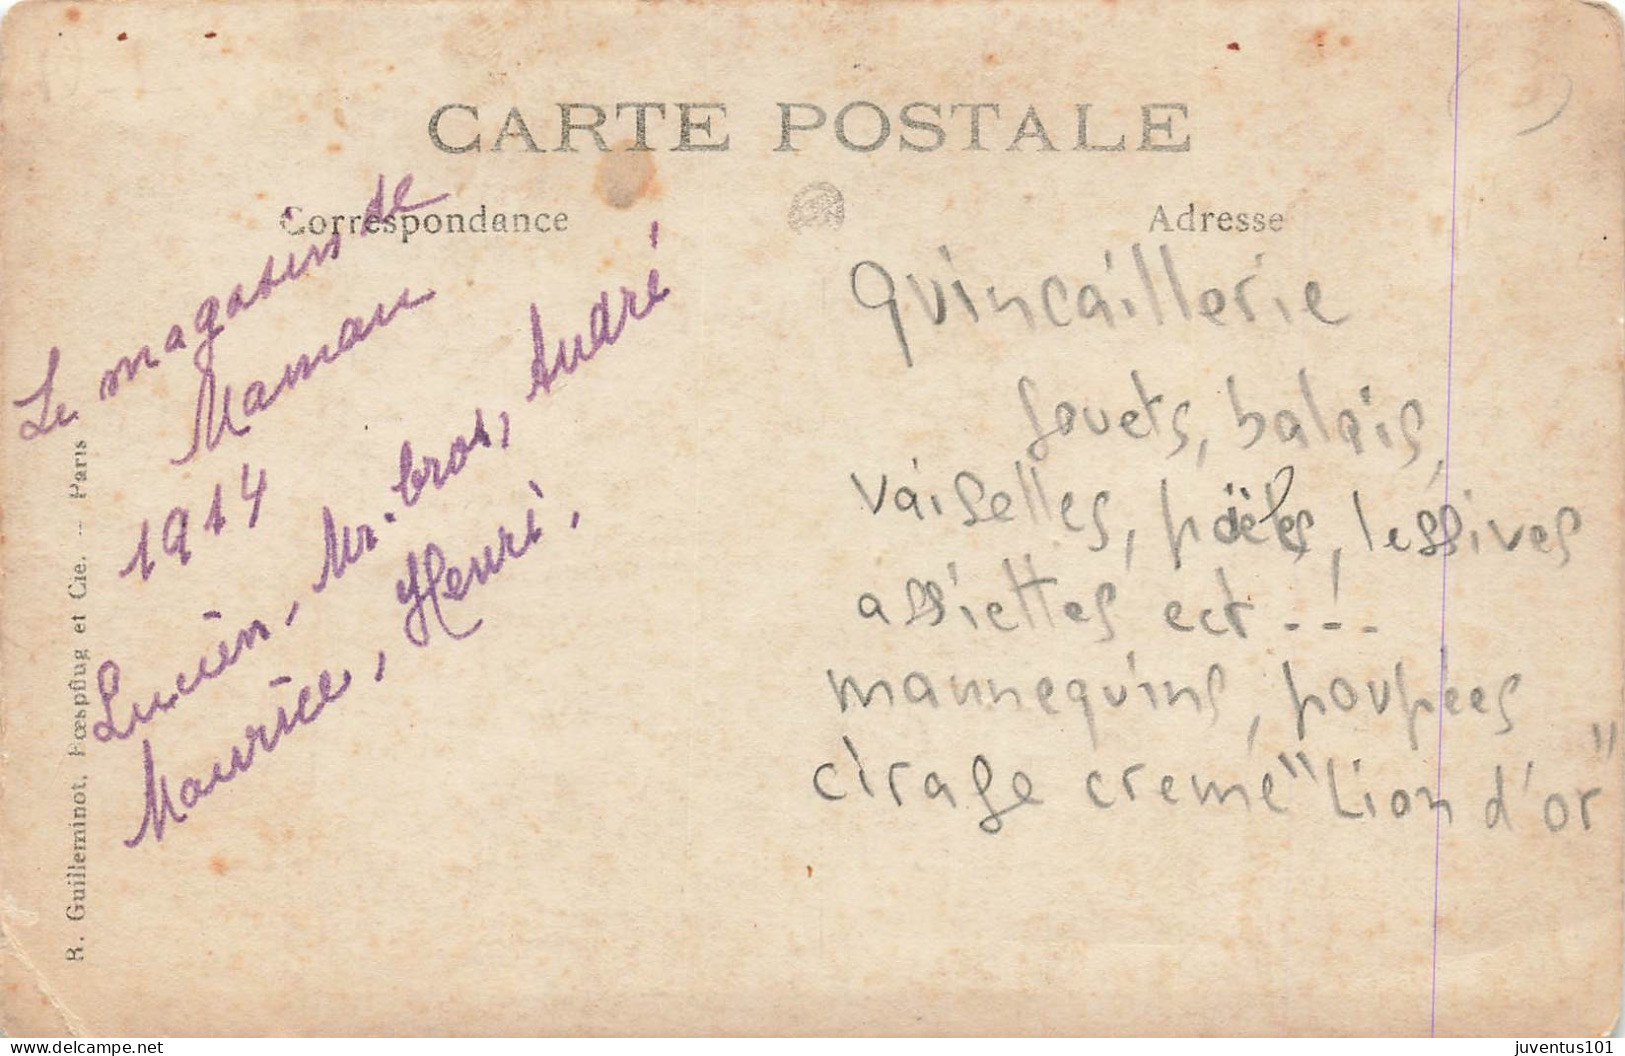 CARTE POSTALE
Correspondance
Adresse
Le magasin de
Maman
1914
Lucien, Mr. bros, André
Maurice, Henri.
quincaillerie
jouets, balais,
vaiselles, poëles, lessives
assiettes ect...!
mannequins, poupées
cirage creme "Lion d'or"
R. Guilleminot, Fœspflug et Cie. -- Paris
juventus101